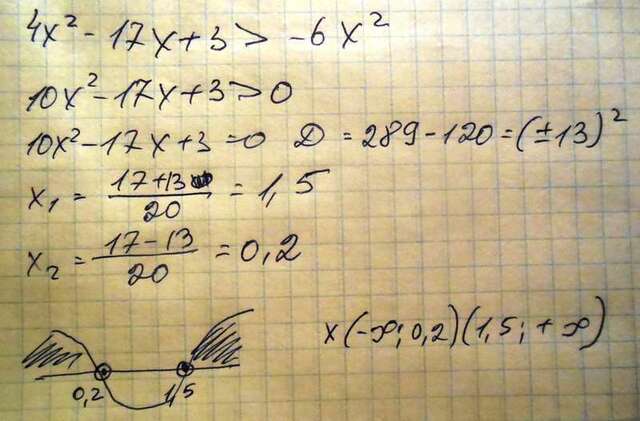 4x² - 17x + 3 > -6x²
10x² - 17x + 3 > 0
10x² - 17x + 3 = 0 D = 289 - 120 = (±13)²
x₁ = (17+13)/20 = 1,5
x₂ = (17-13)/20 = 0,2
x(-∞; 0,2)(1,5; +∞)
0,2 1,5